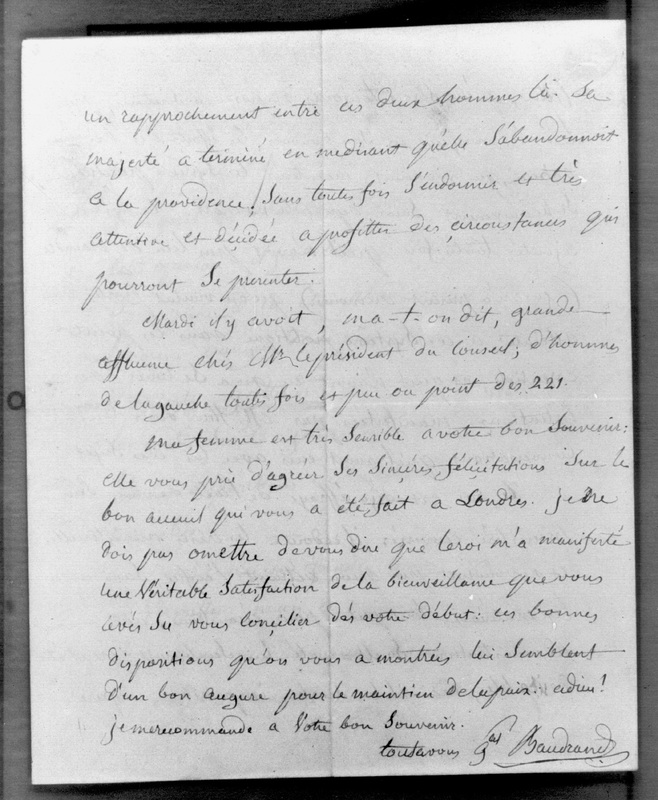 un rapprochement entre ces deux hommes là. Sa
majesté a terminé en me disant qu'elle s'abandonnoit
a la providence, sans toutes fois s'endormir et très
attentive et décidée a profitter des circonstances qui
pourront se presenter.
Mardi il y avoit, m'a-t-on dit, grande
affluence chés Mr. le président du Conseil; d'hommes
de la gauche toutes fois et peu ou point des 221.
Ma femme est très sensible a votre bon souvenir:
elle vous prie d'agréer ses sincéres félicitations sur le
bon acceuil qui vous a été fait a Londres. je ne
dois pas omettre de vous dire que le roi m'a manifesté
une véritable satisfaction de la bienveillance que vous
avés su vous concilier dès votre début: ces bonnes
dispositions qu'on vous a montrées lui semblent
d'un bon augure pour le maintien de la paix. adieu!
je me recommande a votre bon souvenir.
tout a vous Gal Baudrand